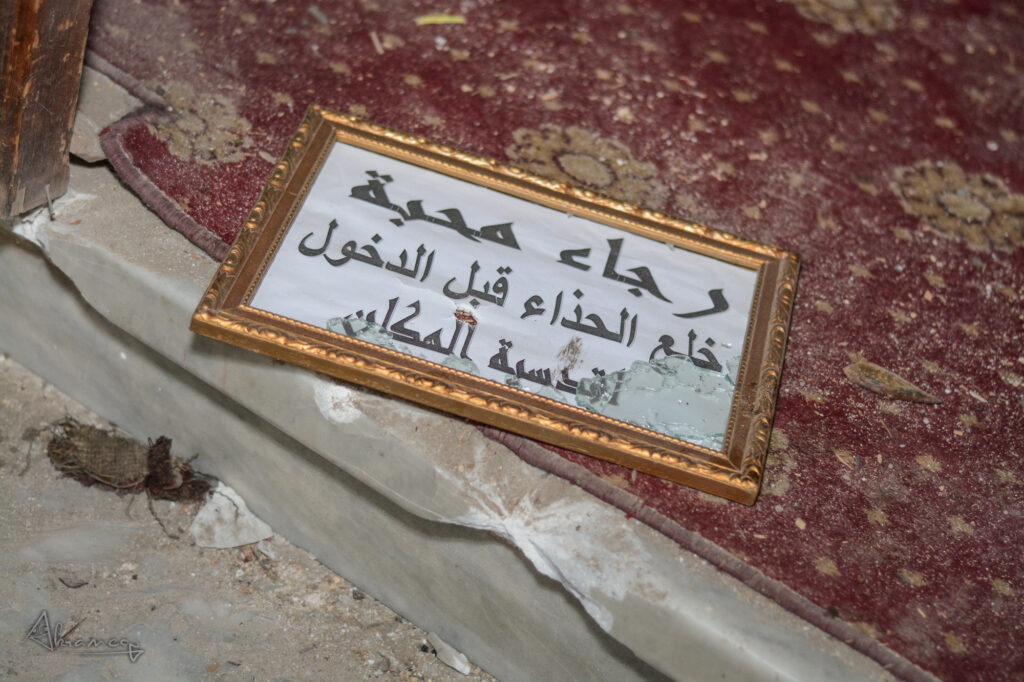 رجاء محبة
خلع الحذاء قبل الدخول
لقدسية المكان